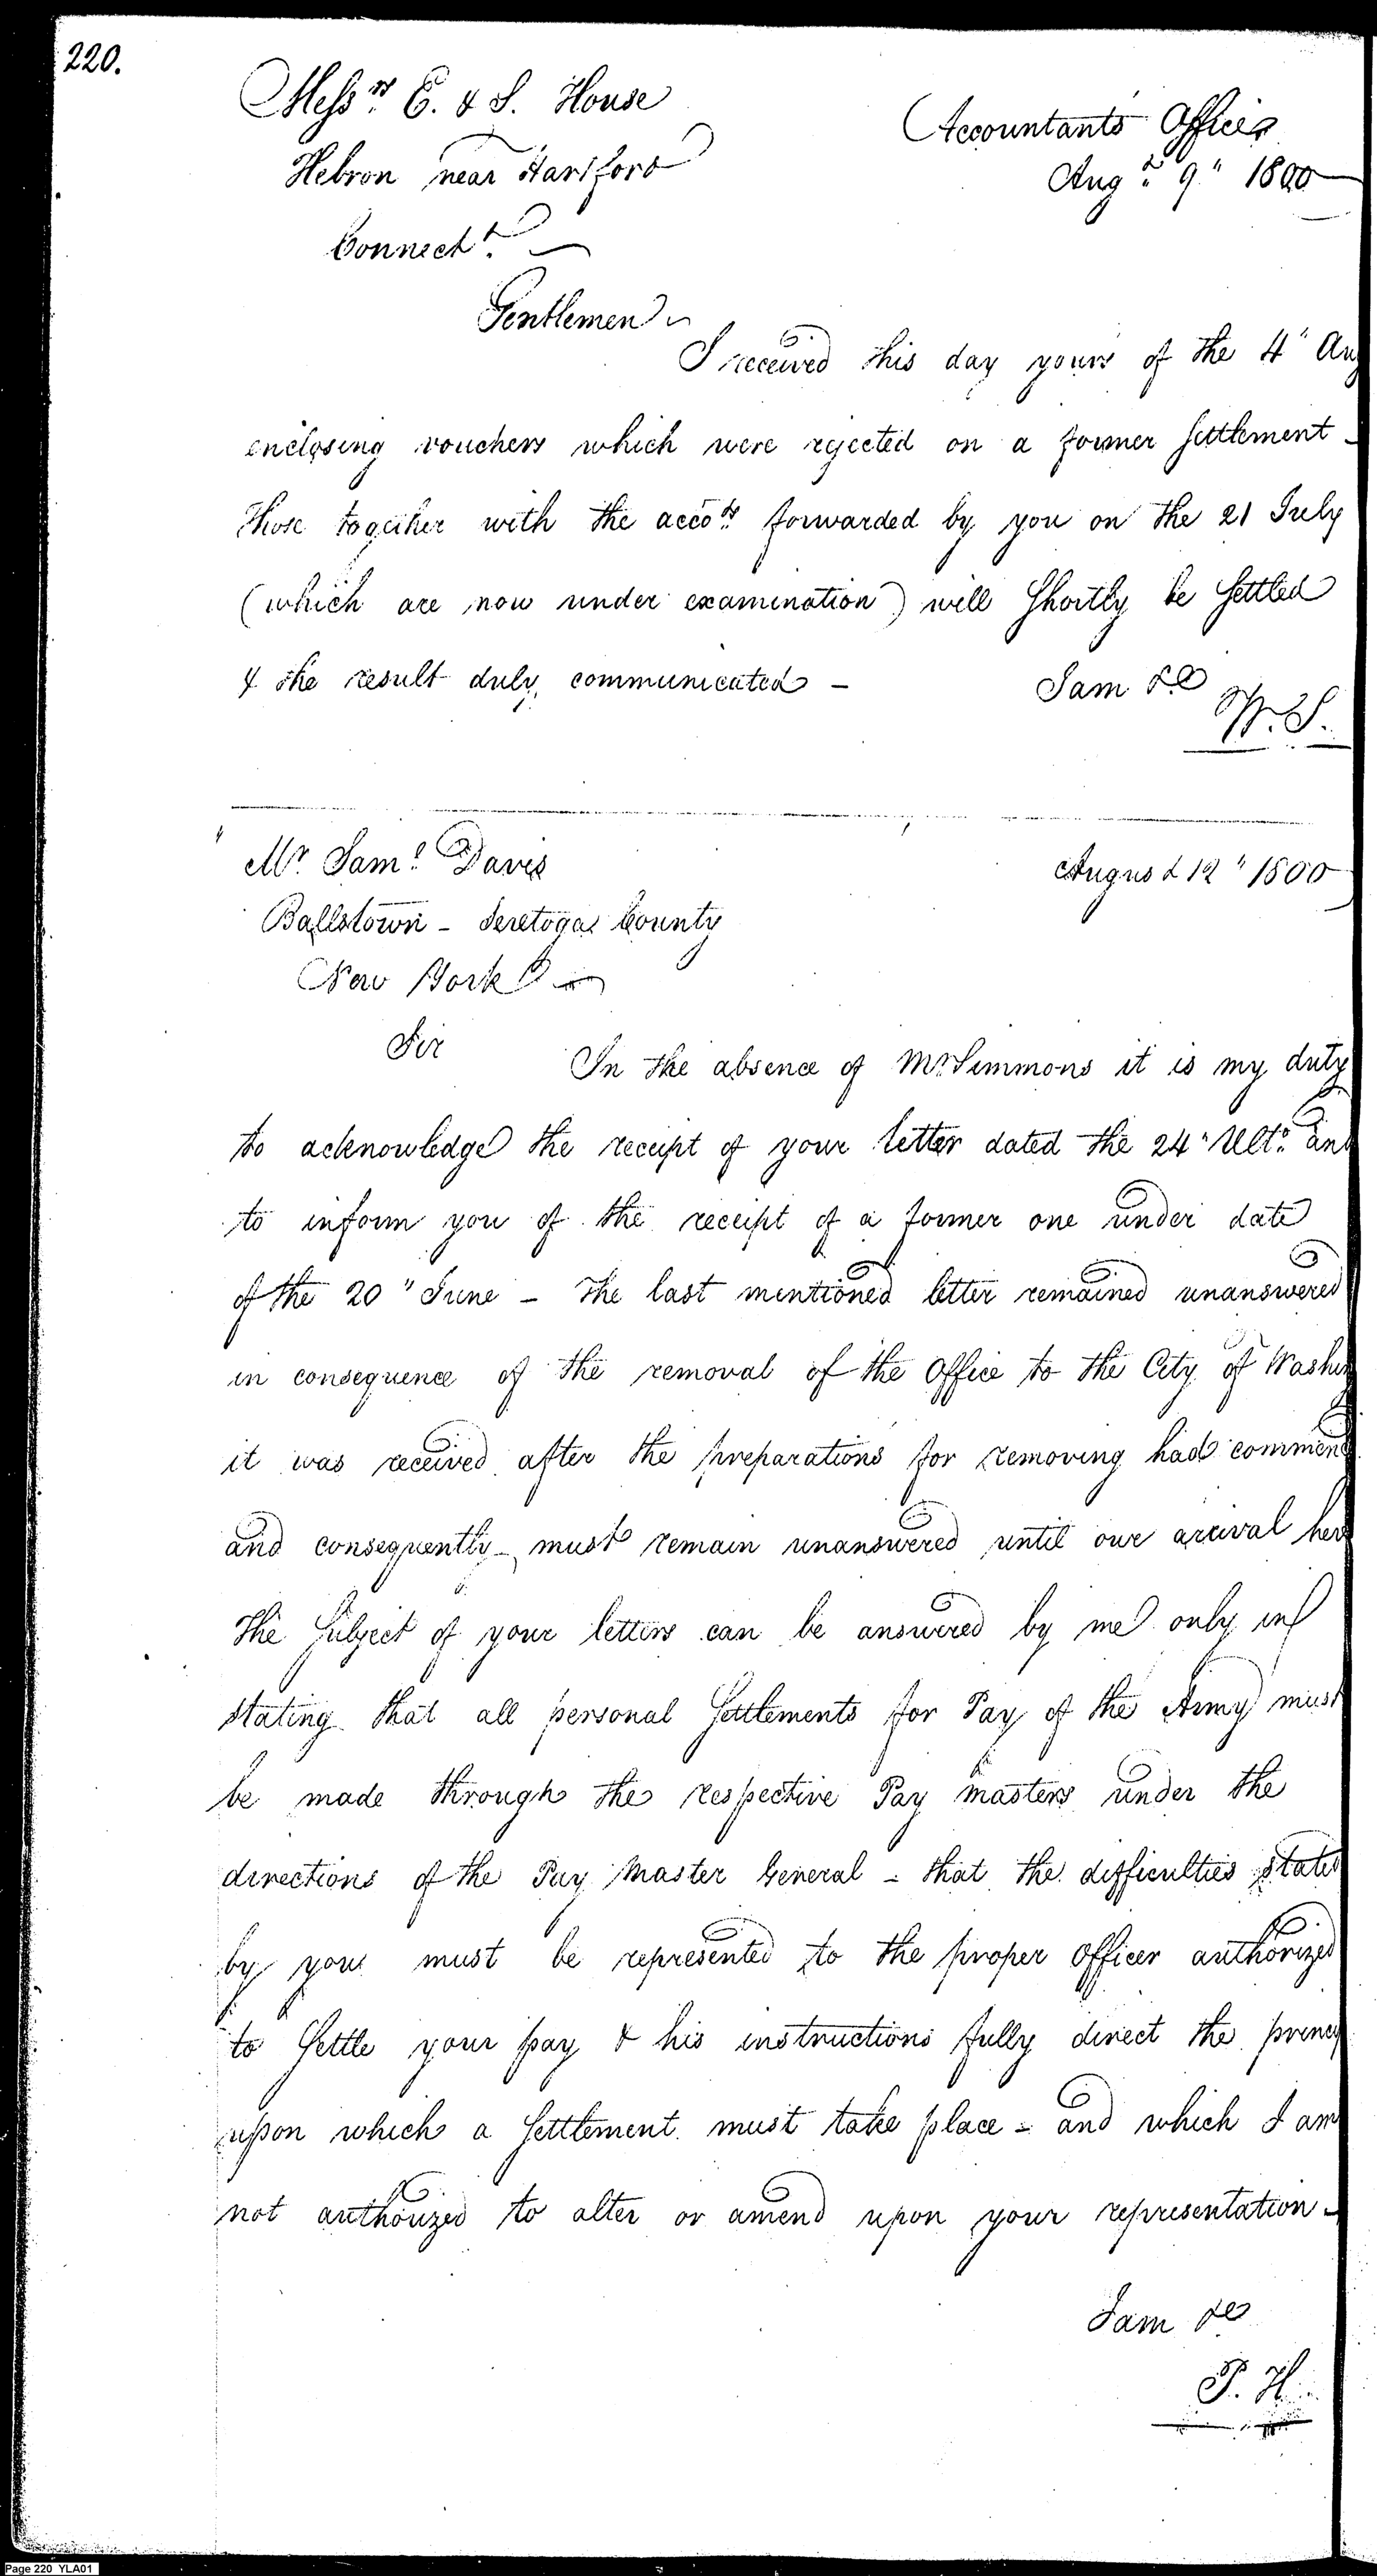 220.
Messrs. E. & S. House
Accountants Office
Hebron near Hartford
Augt. 9" 1800
Connect.
Gentlemen
I received this day yours of the 4" Aug
enclosing vouchers which were rejected on a former Settlement -
those together with the accots. forwarded by you on the 21 July
(which are now under examination) will Shortly be Settled
& the result duly communicated -
I am &c
W. S.
Mr. Saml. Davis
August 12" 1800
Ballstown - Seretoga County
New York
Sir
In the absence of Mr. Simmons it is my duty
to acknowledge the receipt of your letter dated the 24" Ulto. and
to inform you of the receipt of a former one under date
of the 20" June - The last mentioned letter remained unanswered
in consequence of the removal of the Office to the City of Washin
it was received after the preparations for removing had commenc
and consequently must remain unanswered until our arrival here
The Subject of your letters can be answered by me only in
stating that all personal Settlements for Pay of the Army must
be made through the respective Pay masters under the
directions of the Pay Master General - that the difficulties stated
by you must be represented to the proper Officer authorized
to Settle your pay & his instructions fully direct the princip
upon which a Settlement must take place - and which I am
not authorized to alter or amend upon your representation -
I am &c
P. H.
Page 220 YLA01